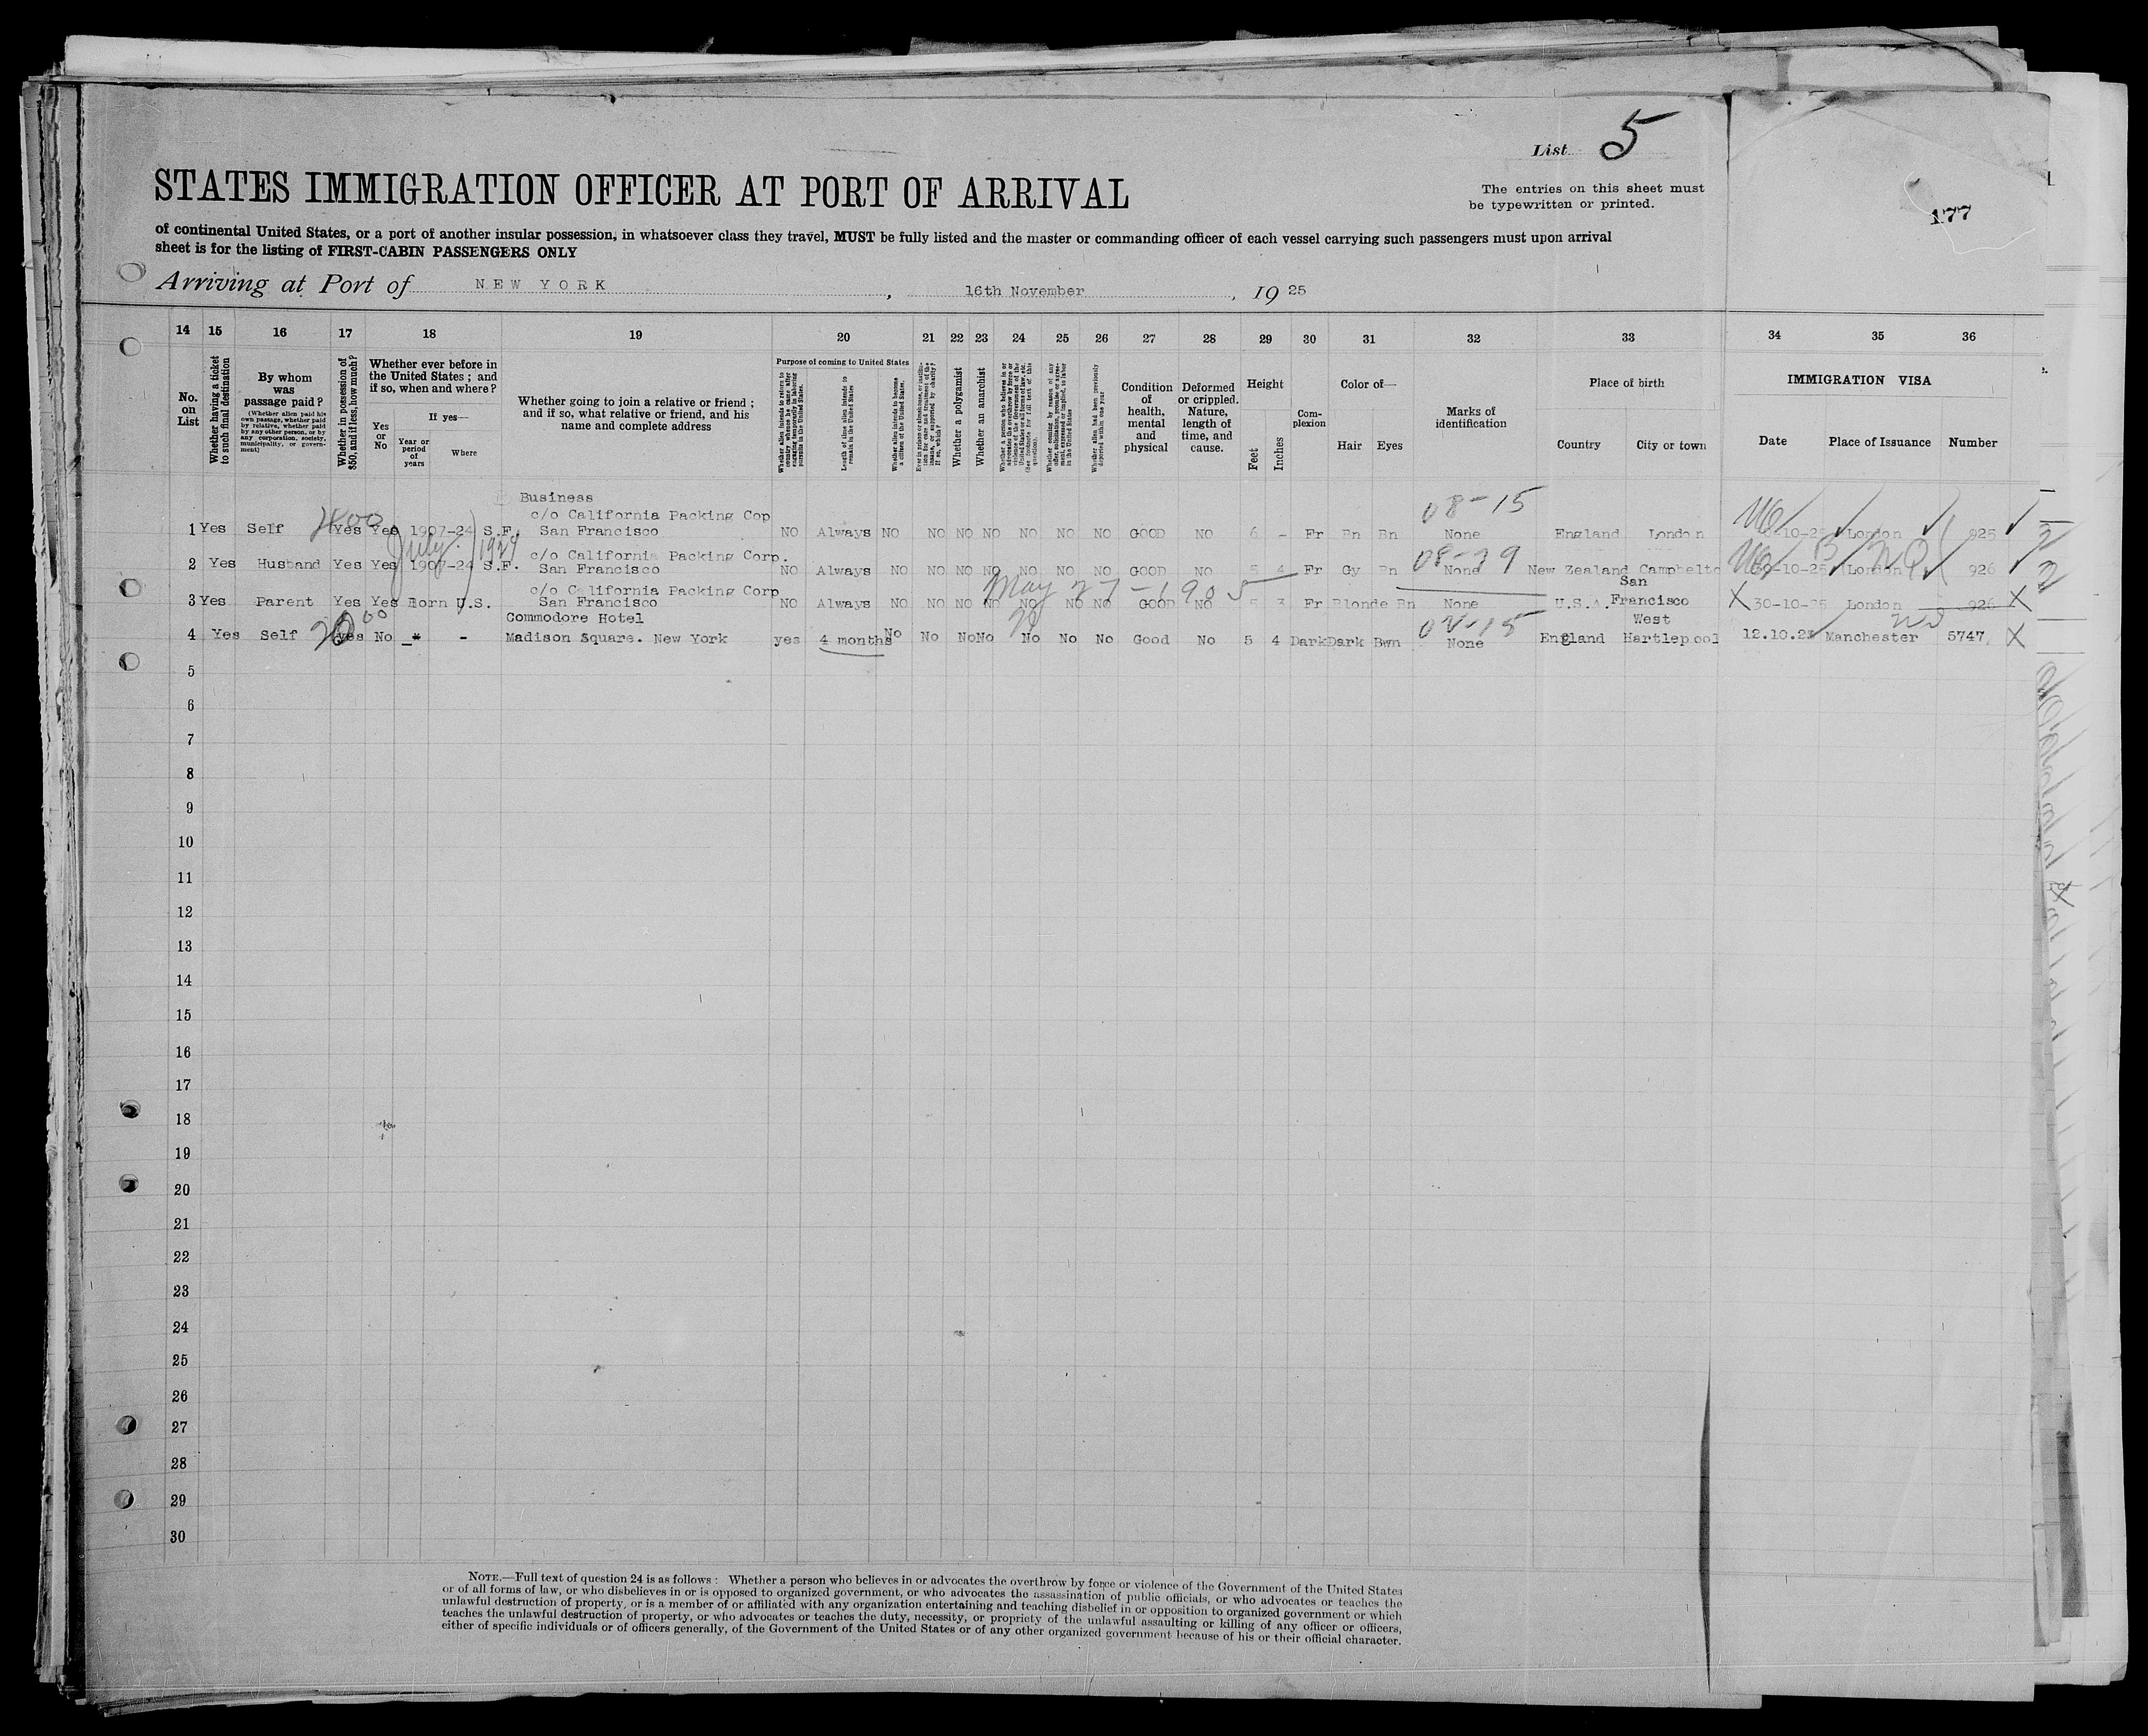 List 5
The entries on this sheet must
be typewritten or printed.
177
STATES IMMIGRATION OFFICER AT PORT OF ARRIVAL
of continental United States, or a port of another insular possession, in whatsoever class they travel, MUST be fully listed and the master or commanding officer of each vessel carrying such passengers must upon arrival
sheet is for the listing of FIRST-CABIN PASSENGERS ONLY
Arriving at Port of NEW YORK, 16th November, 19 25
14 15 16 17 18 19 20 21 22 23 24 25 26 27 28 29 30 31 32 33 34 35 36
No. on List
Whether having a ticket to such final destination
By whom was passage paid?
(Whether alien paid his own passage, whether paid by relative, whether paid by any other person, or by any corporation, society, municipality, or government)
Whether in possession of $50, and if less, how much?
Whether ever before in the United States; and if so, when and where?
Yes or No
If yes—
Year or period of years
Where
Whether going to join a relative or friend; and if so, what relative or friend, and his name and complete address
Purpose of coming to United States
Whether alien intends to return to country whence he came after engaging temporarily in laboring pursuits in the United States.
Length of time alien intends to remain in the United States
Whether alien intends to become a citizen of the United States.
Whether a polygamist
Whether an anarchist
Whether alien had been previously deported within one year
Condition of health, mental and physical
Deformed or crippled. Nature, length of time, and cause.
Height
Feet
Inches
Complexion
Color of—
Hair
Eyes
Marks of identification
Place of birth
Country
City or town
IMMIGRATION VISA
Date
Place of Issuance
Number
Business
c/o California Packing Cop
08-15
1 Yes Self Yes Yes 1907-24 S.F. San Francisco NO Always NO NO NO NO NO NO NO GOOD NO 6 - Fr Bn Bn None England London -10-25 London 925
July 1924
c/o California Packing Corp.
08-29
2 Yes Husband Yes Yes 1907-24 S.F. San Francisco NO Always NO NO NO NO NO NO NO GOOD NO 5 4 Fr Gy Bn None New Zealand Campbelto 30-10-25 London 926
c/o California Packing Corp
May 27-1905
San
3 Yes Parent Yes Yes Born U.S. San Francisco NO Always NO NO NO NO NO NO NO GOOD NO 5 3 Fr Blonde Bn None U.S.A. Francisco X 30-10-25 London 926 X
Commodore Hotel
West
4 Yes Self Yes No - - Madison Square. New York yes 4 months No No No No No No No Good No 5 4 Dark Dark Bwn None England Hartlepool 12.10.25 Manchester 5747 X
5
6
7
8
9
10
11
12
13
14
15
16
17
18
19
20
21
22
23
24
25
26
27
28
29
30
NOTE.—Full text of question 24 is as follows: Whether a person who believes in or advocates the overthrow by force or violence of the Government of the United States
or of all forms of law, or who disbelieves in or is opposed to organized government, or who advocates the assassination of public officials, or who advocates or teaches the
unlawful destruction of property, or is a member of or affiliated with any organization entertaining and teaching disbelief in or opposition to organized government or which
teaches the unlawful destruction of property, or who advocates or teaches the duty, necessity, or propriety of the unlawful assaulting or killing of any officer or officers,
either of specific individuals or of officers generally, of the Government of the United States or of any other organized government because of his or their official character.